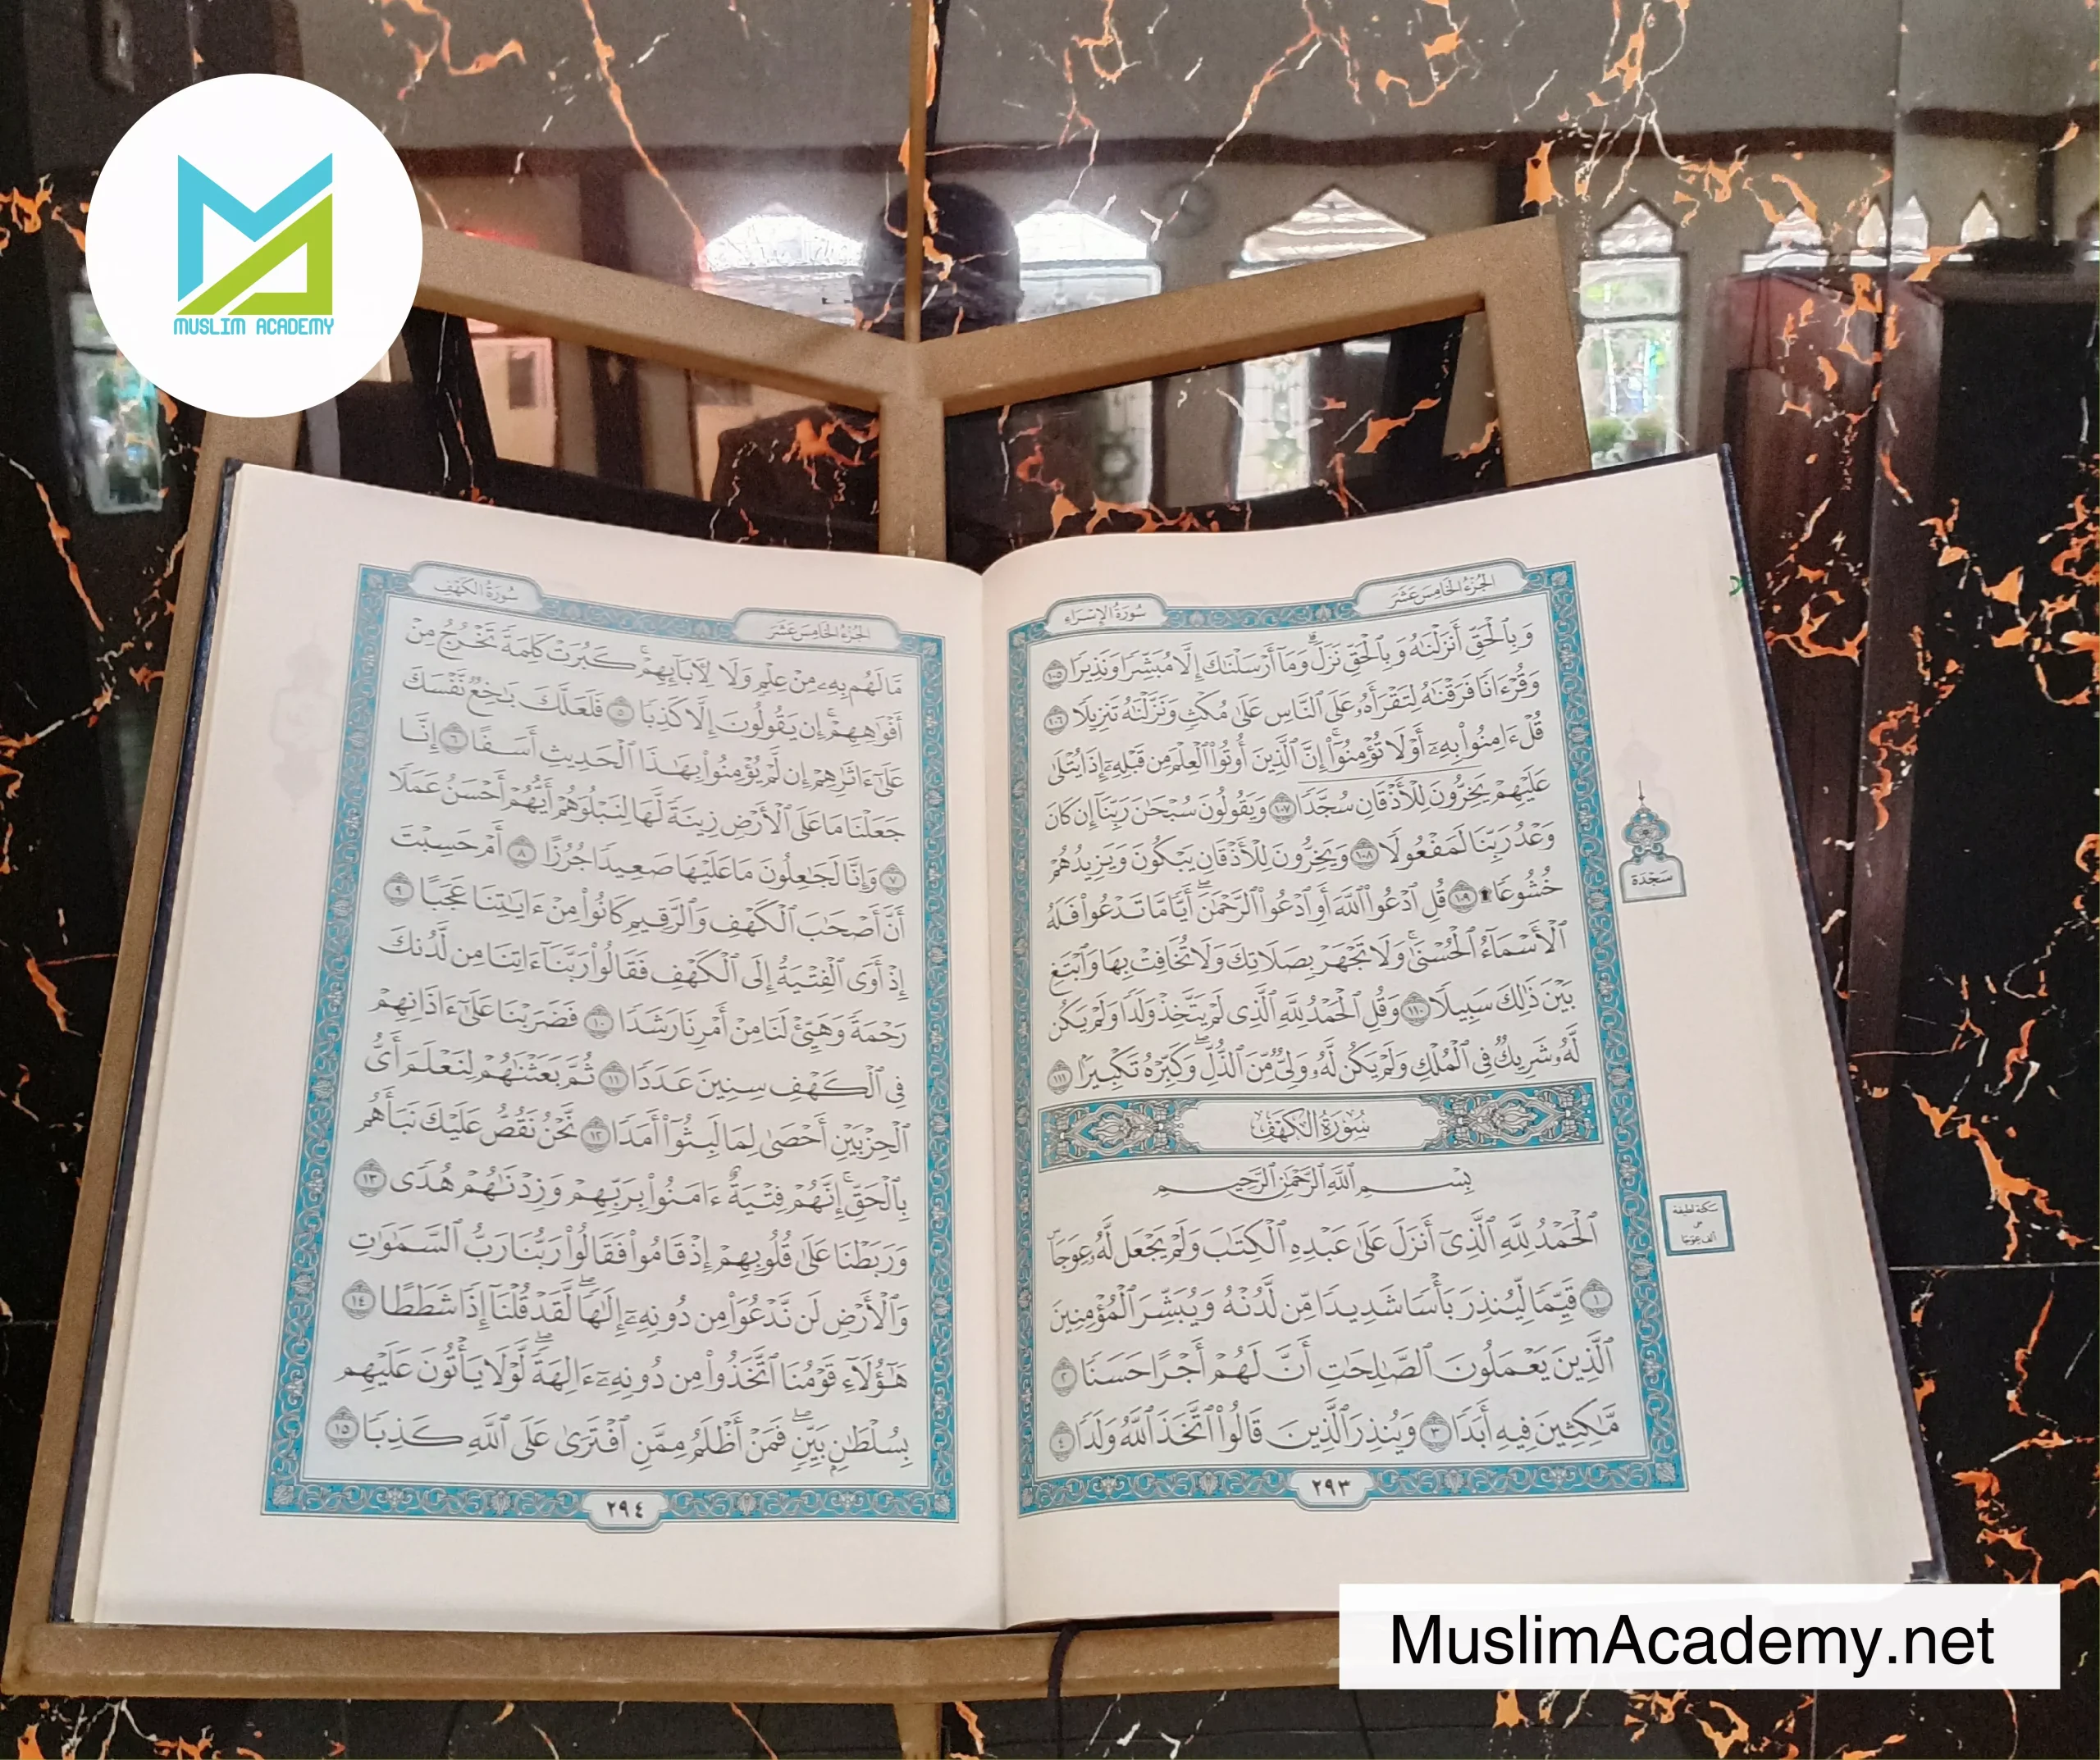 MUSLIM ACADEMY
الجزء الخامس عشر
سورة الإسراء
وَبِٱلْحَقِّ أَنزَلْنَٰهُ وَبِٱلْحَقِّ نَزَلَ ۗ وَمَآ أَرْسَلْنَٰكَ إِلَّا مُبَشِّرًا وَنَذِيرًا ١٠٥
وَقُرْءَانًا فَرَقْنَٰهُ لِتَقْرَأَهُۥ عَلَى ٱلنَّاسِ عَلَىٰ مُكْثٍ وَنَزَّلْنَٰهُ تَنزِيلًا ١٠٦
قُلْ ءَامِنُوا۟ بِهِۦٓ أَوْ لَا تُؤْمِنُوٓا۟ ۚ إِنَّ ٱلَّذِينَ أُوتُوا۟ ٱلْعِلْمَ مِن قَبْلِهِۦٓ إِذَا يُتْلَىٰ
عَلَيْهِمْ يَخِرُّونَ لِلْأَذْقَانِ سُجَّدًا ١٠٧ وَيَقُولُونَ سُبْحَٰنَ رَبِّنَآ إِن كَانَ
وَعْدُ رَبِّنَا لَمَفْعُولًا ١٠٨ وَيَخِرُّونَ لِلْأَذْقَانِ يَبْكُونَ وَيَزِيدُهُمْ
خُشُوعًا ۩ ١٠٩ قُلِ ٱدْعُوا۟ ٱللَّهَ أَوِ ٱدْعُوا۟ ٱلرَّحْمَٰنَ ۖ أَيًّا مَّا تَدْعُوا۟ فَلَهُ
ٱلْأَسْمَآءُ ٱلْحُسْنَىٰ ۚ وَلَا تَجْهَرْ بِصَلَاتِكَ وَلَا تُخَافِتْ بِهَا وَٱبْتَغِ
بَيْنَ ذَٰلِكَ سَبِيلًا ١١٠ وَقُلِ ٱلْحَمْدُ لِلَّهِ ٱلَّذِى لَمْ يَتَّخِذْ وَلَدًا وَلَمْ يَكُن
لَّهُۥ شَرِيكٌ فِى ٱلْمُلْكِ وَلَمْ يَكُن لَّهُۥ وَلِىٌّ مِّنَ ٱلذُّلِّ ۖ وَكَبِّرْهُ تَكْبِيرًۢا ١١١
سُورَةُ الكَهْفِ
بِسْمِ ٱللَّهِ ٱلرَّحْمَٰنِ ٱلرَّحِيمِ
ٱلْحَمْدُ لِلَّهِ ٱلَّذِىٓ أَنزَلَ عَلَىٰ عَبْدِهِ ٱلْكِتَٰبَ وَلَمْ يَجْعَل لَّهُۥ عِوَجَا ۜ
١ قَيِّمًا لِّيُنذِرَ بَأْسًا شَدِيدًا مِّن لَّدُنْهُ وَيُبَشِّرَ ٱلْمُؤْمِنِينَ
ٱلَّذِينَ يَعْمَلُونَ ٱلصَّٰلِحَٰتِ أَنَّ لَهُمْ أَجْرًا حَسَنًا ٢
مَّٰكِثِينَ فِيهِ أَبَدًا ٣ وَيُنذِرَ ٱلَّذِينَ قَالُوا۟ ٱتَّخَذَ ٱللَّهُ وَلَدًا ٤
٢٩٣
سَجْدَة
سكتة لطيفة
على
ألف عِوَجَا
الجزء الخامس عشر
سورة الكهف
مَّا لَهُم بِهِۦ مِنْ عِلْمٍ وَلَا لِءَابَآئِهِمْ ۚ كَبُرَتْ كَلِمَةً تَخْرُجُ مِنْ
أَفْوَٰهِهِمْ ۚ إِن يَقُولُونَ إِلَّا كَذِبًا ٥ فَلَعَلَّكَ بَٰخِعٌ نَّفْسَكَ
عَلَىٰٓ ءَاثَٰرِهِمْ إِن لَّمْ يُؤْمِنُوا۟ بِهَٰذَا ٱلْحَدِيثِ أَسَفًا ٦ إِنَّا
جَعَلْنَا مَا عَلَى ٱلْأَرْضِ زِينَةً لَّهَا لِنَبْلُوَهُمْ أَيُّهُمْ أَحْسَنُ عَمَلًا
٧ وَإِنَّا لَجَٰعِلُونَ مَا عَلَيْهَا صَعِيدًا جُرُزًا ٨ أَمْ حَسِبْتَ
أَنَّ أَصْحَٰبَ ٱلْكَهْفِ وَٱلرَّقِيمِ كَانُوا۟ مِنْ ءَايَٰتِنَا عَجَبًا ٩
إِذْ أَوَى ٱلْفِتْيَةُ إِلَى ٱلْكَهْفِ فَقَالُوا۟ رَبَّنَآ ءَاتِنَا مِن لَّدُنكَ
رَحْمَةً وَهَيِّئْ لَنَا مِنْ أَمْرِنَا رَشَدًا ١٠ فَضَرَبْنَا عَلَىٰٓ ءَاذَانِهِمْ
فِى ٱلْكَهْفِ سِنِينَ عَدَدًا ١١ ثُمَّ بَعَثْنَٰهُمْ لِنَعْلَمَ أَىُّ
ٱلْحِزْبَيْنِ أَحْصَىٰ لِمَا لَبِثُوٓا۟ أَمَدًا ١٢ نَّحْنُ نَقُصُّ عَلَيْكَ نَبَأَهُم
بِٱلْحَقِّ ۚ إِنَّهُمْ فِتْيَةٌ ءَامَنُوا۟ بِرَبِّهِمْ وَزِدْنَٰهُمْ هُدًى ١٣
وَرَبَطْنَا عَلَىٰ قُلُوبِهِمْ إِذْ قَامُوا۟ فَقَالُوا۟ رَبُّنَا رَبُّ ٱلسَّمَٰوَٰتِ
وَٱلْأَرْضِ لَن نَّدْعُوَا۟ مِن دُونِهِۦٓ إِلَٰهًا ۖ لَّقَدْ قُلْنَآ إِذًا شَطَطًا ١٤
هَٰٓؤُلَآءِ قَوْمُنَا ٱتَّخَذُوا۟ مِن دُونِهِۦٓ ءَالِهَةً ۖ لَّوْلَا يَأْتُونَ عَلَيْهِم
بِسُلْطَٰنٍۭ بَيِّنٍ ۖ فَمَنْ أَظْلَمُ مِمَّنِ ٱفْتَرَىٰ عَلَى ٱللَّهِ كَذِبًا ١٥
٢٩٤
MuslimAcademy.net